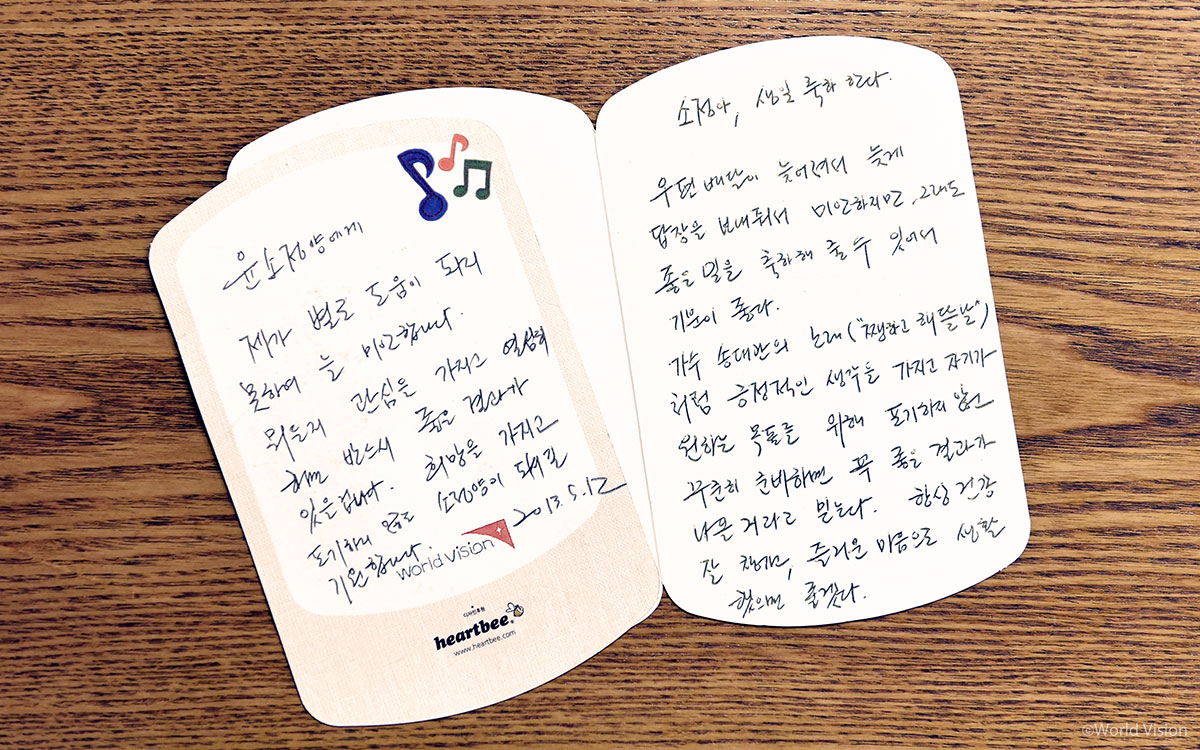 윤소정양에게
제가 별로 도움이 되지
못하여 늘 미안합니다.
뭐든지 관심을 가지고 열심히
하면 반드시 좋은 결과가
있을겁니다. 희망을 가지고
포기하지 않는 소정양이 되시길
기원합니다 2013. 5. 12
World Vision
디자인후원
heartbee.
www.heartbee.com
소정아, 생일 축하 한다.
우편 배달이 늦어져서 늦게
답장을 보내줘서 미안하지만, 그래도
좋은 일을 축하해 줄 수 있어서
기분이 좋다.
가수 송대관의 노래("쨍하고 해뜰날")
처럼 긍정적인 생각을 가지고 자기가
원하는 목표를 위해 포기하지 않고
꾸준히 준비하면 꼭 좋은 결과가
나올 거라고 믿는다. 항상 건강
잘 챙기고, 즐거운 마음으로 생활
했으면 좋겠다.
©World Vision